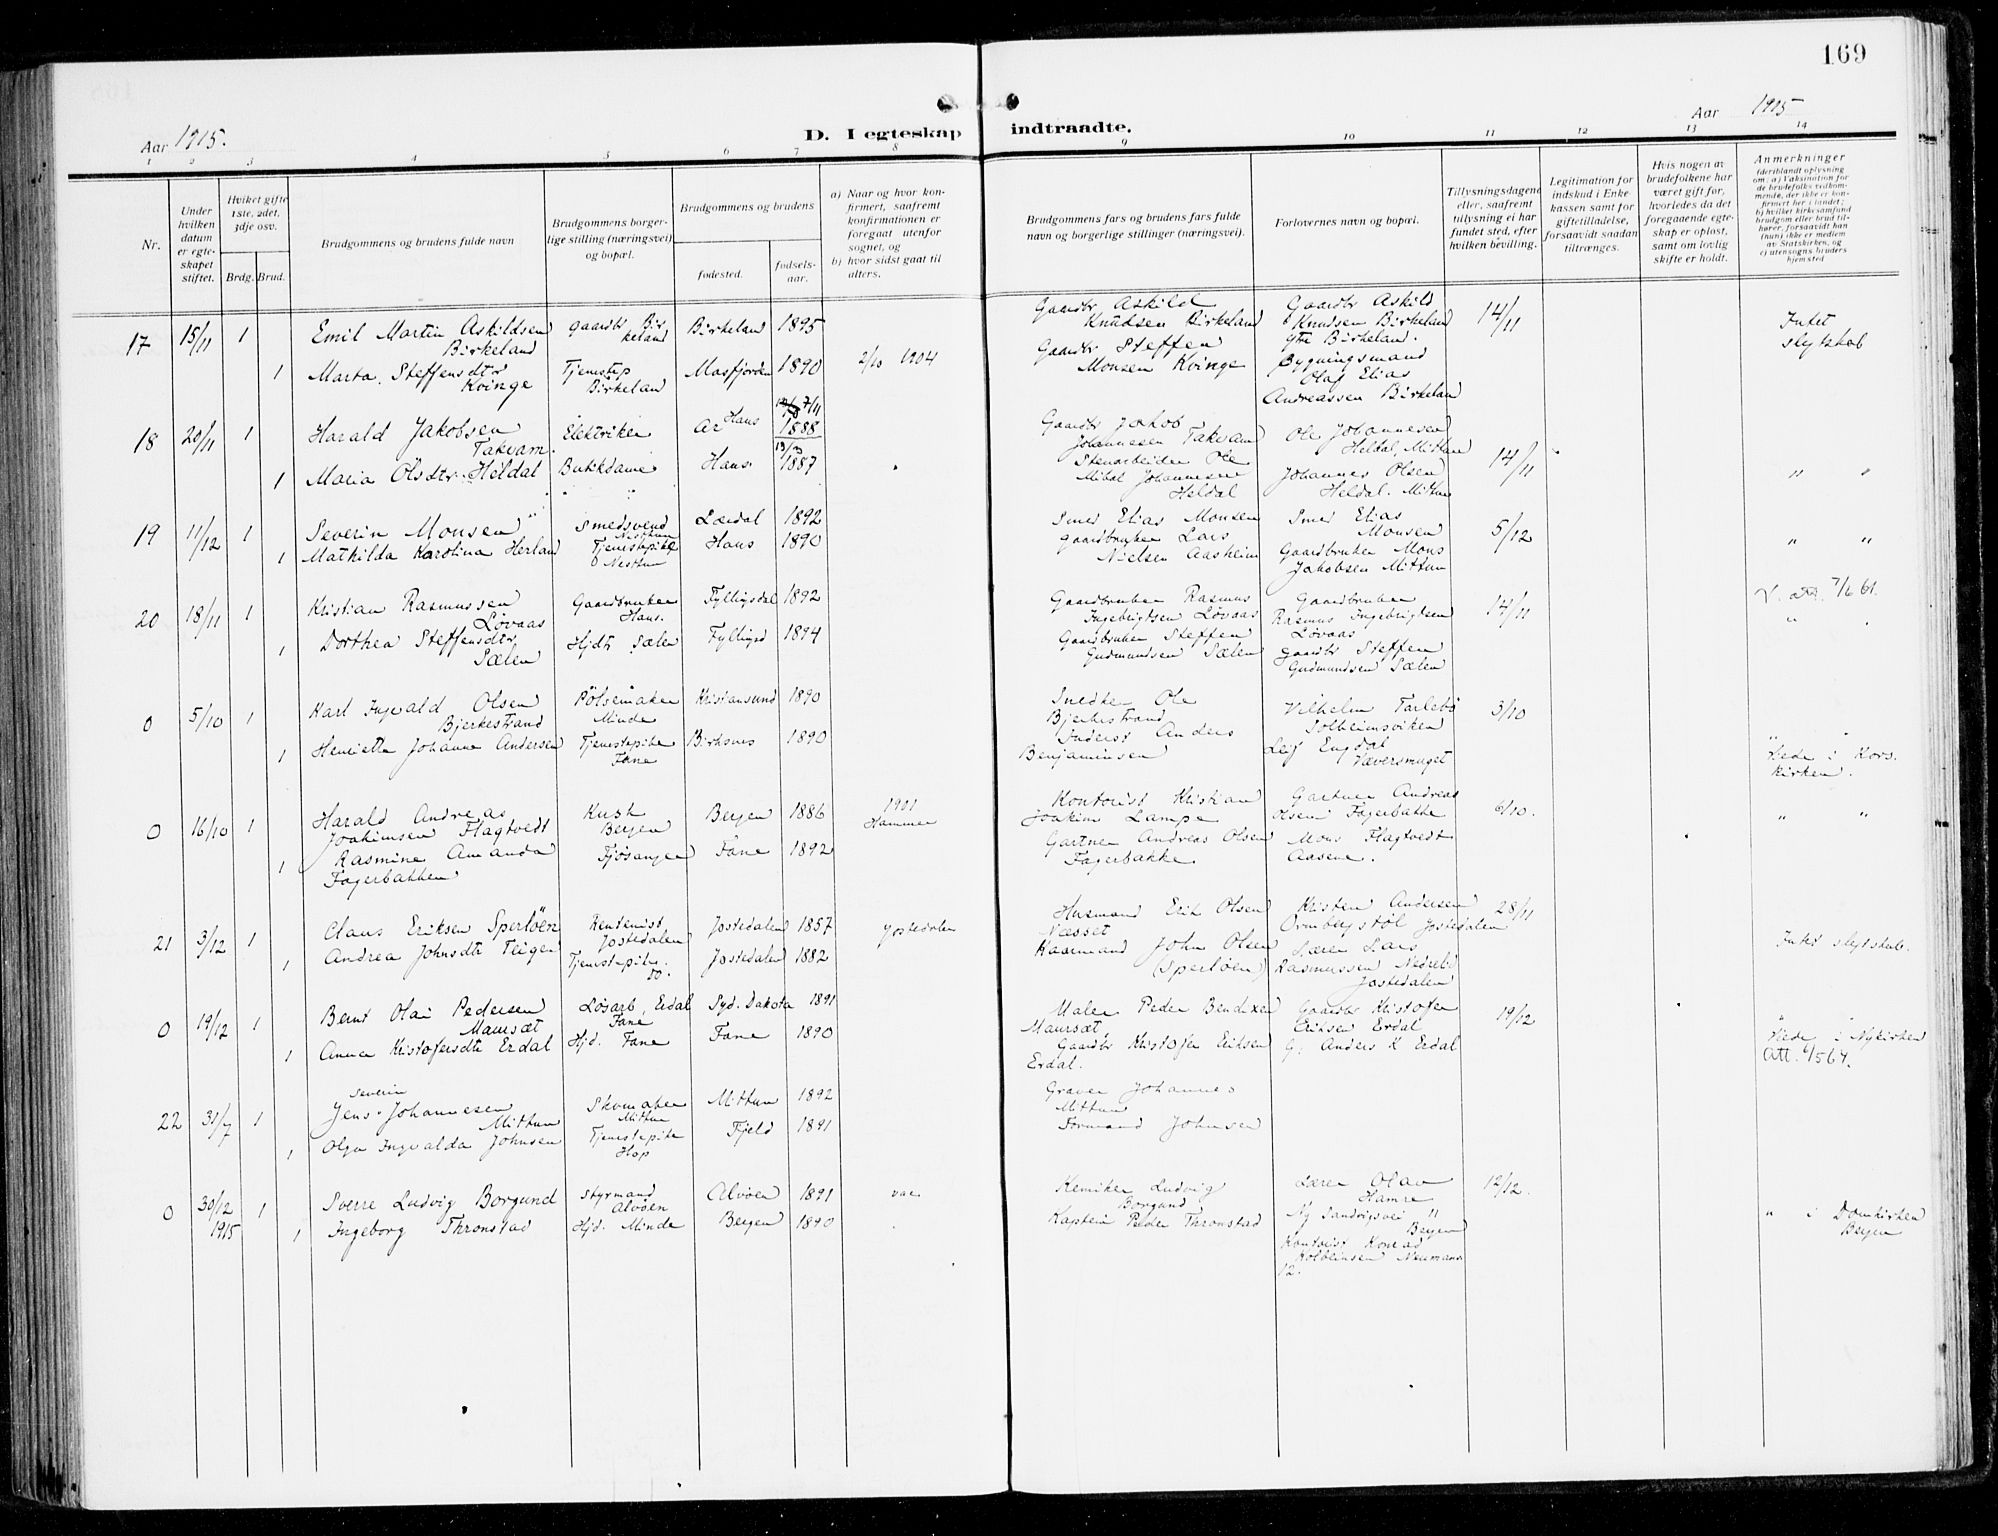 169
Aar 1915.
D. I egteskap indtraadte.
Aar 1915
1 2 3 4 5 6 7 8 9 10 11 12 13 14
Nr.
Under hvilken datum er egteskapet stiftet.
Hviket gifte 1ste, 2det, 3dje osv.
Brdg. Brud.
Brudgommens og brudens fulde navn
Brudgommens borgerlige stilling (næringsvei) og bopæl.
Brudgommens og brudens
fødested.
fødselsaar.
a) Naar og hvor konfirmert, saafremt konfirmationen er foregaat utenfor sognet, og
b) hvor sidst gaat til alters.
Brudgommens fars og brudens fars fulde navn og borgerlige stillinger (næringsvei).
Forlovernes navn og bopæl.
Tillysningsdagene eller, saafremt tillysning ei har fundet sted, efter hvilken bevilling.
Legitimation for indskud i Enkekassen samt for giftetilladelse, forsaavidt saadan tiltrænges.
Hvis nogen av brudefolkene har været gift før, hvorledes da det foregaaende egteskap er opløst, samt om lovlig skifte er holdt.
Anmerkninger (deriblandt oplysning om: a) Vaksination for de brudefolks vedkommende, der ikke er konfirmert her i landet; b) hvilket kirkesamfund brudgom eller brud tilhører, forsaavidt han (hun) ikke er medlem av Statskirken, og c) utensogns bruders hjemsted
17 15/11 1 Emil Martin Askildsen Birkeland Gaardbr Birkeland Birkeland 1895 Gaardbr Askild Knudsen Birkeland Gaardbr Askild Knudsen Birkeland 14/11 Intet slegtskab
1 Marta Steffensdtr Kvinge Tjenestep Birkeland Masfjorden 1890 2/10 1904 Gaardbr Steffen Monsen Kvinge Bygningsmand Olaf Elias Andreassen Birkeland
18 20/11 1 Harald Jakobsen Takvam Elektriker Haus 7/11 1888 Gaardbr Jakob Johannesen Takvam Ole Johannesen Heldal, Mittun 14/11
1 Maria Olsdtr. Heldal Butikdame Haus 1887 Stenarbeider Ole Johannesen Heldal Johannes Olsen Heldal. Mittun " "
19 11/12 1 Severin Monsen Smedsvend Nesttun Lærdal 1892 Smed Elias Monsen Smed Elias Monsen 5/12
1 Mathilda Karolina Herland Tjenestepike Nesttun Haus 1890 Gaardbruker Lars Nielsen Aasheim Gaardbruker Mons Jakobsen Mittun " "
20 18/11 1 Kristian Rasmussen Løvaas Gaardbruker Haus. Fyllingsdal 1892 Gaardbruker Rasmus Ingebrigtsen Løvaas Gaardbruker Rasmus Ingebrigtsen Løvaas 14/11 V. att. 7/6 61.
1 Dorthea Steffensdtr Sælen Hjdt Sælen Fyllingsd 1894 Gaardbruker Steffen Gudmundsen Sælen Gaardbr Steffen Gudmundsen Sælen "
0 5/10 1 Karl Ingvald Olsen Bjerkestrand Pølsemaker Minde Kristiansund 1890 Snedker Ole Bjerkestrand Vilhelm Farlebø Solheimsviken 3/10
1 Henriette Johanne Andersen Tjenestepike Fane Birknes 1890 Anders Benjaminsen Leif Engdal Væversmuget Viede i Korskirken.
0 16/10 1 Harald Andreas Joakimsen Flagtvedt Kusk Bergen Bergen 1886 1901 Hammer Kontorist Kristian Joakim Lampe Gartner Andreas Olsen Fagerbakke 6/10. " "
1 Rasmine Amanda Fagerbakken Fjøsanger Fane 1892 Gartner Andreas Olsen Fagerbakke Mons Flagtvedt Aasene.
21 3/12 1 Claus Eriksen Sperløen Rentenist Jostedalen Jostedalen 1857 Jostedalen Husmand Erik Olsen Næsset Kristen Andersen Ormbergstøl Jostedalen 28/11
1 Andrea Johnsdtr Teigen Tjenestepike do. Jostedalen 1882 Kaarmand John Olsen (Sperløen) Lærer Lars Rasmussen Nedrelid Jostedalen Intet slegtskab.
0 19/12 1 Bernt Olai Pedersen Maursæt Løsarb, Erdal Fane Syd. Dakota 1891 Maler Peder Bendixen Maursæt Gaardbr Kristofer Eriksen Erdal 19/12
1 Anna Kristofersdtr Erdal Hjd. Fane Fane 1890 Gaardbr Kristofer Eriksen Erdal. G. Anders K Erdal Viede i Nykirken Att. 4/5 64.
22 31/7 1 Jens Severin Johannesen Mittun Skomaker Mittun Mittun 1892 Graver Johannes Mittun
1 Olga Ingvalda Johnsen Tjenestepike Hop Fjeld 1891 Formand Johnsen
0 30/12 1915 1 Sverre Ludvig Borgund Styrmand Alvøen Alvøen 1891 vac Kemiker Ludvig Borgund Lærer Olav Hamre Ny Sandvigsvei 11 Bergen 12/12.
1 Ingeborg Thronstad Hjd. Minde Bergen 1890 Kaptein Peder Thronstad Kontorist Konrad Kolbeinsen Neumans. 12. " i Domkirken Bergen